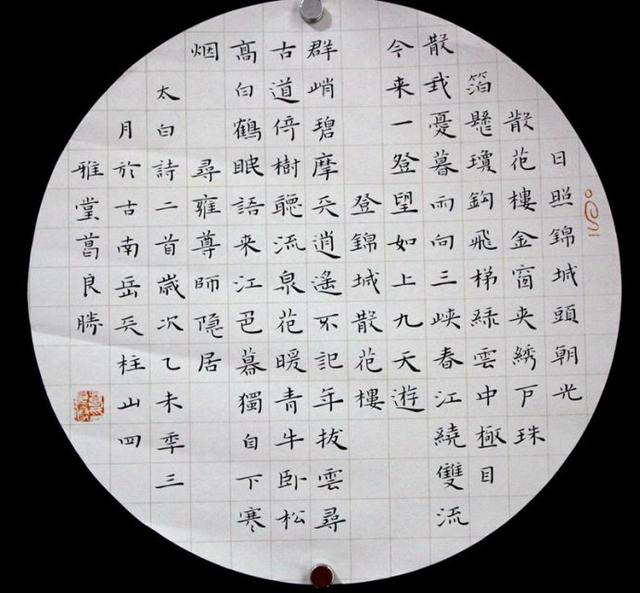 日照錦城頭朝光
散花樓金窗夾綉戶珠
箔懸瓊鈎飛梯綠雲中極目
散我憂暮雨向三峽春江繞雙流
今来一登望如上九天遊
登錦城散花樓
群峭碧摩天逍遙不記年拔雲尋
古道倚樹聽流泉花暖青牛卧松
髙白鶴眠語来江邑暮獨自下寒
烟 尋雍尊師隐居
太白詩二首歲次乙未秊三
月於古南岳天柱山四
雅堂葛良勝